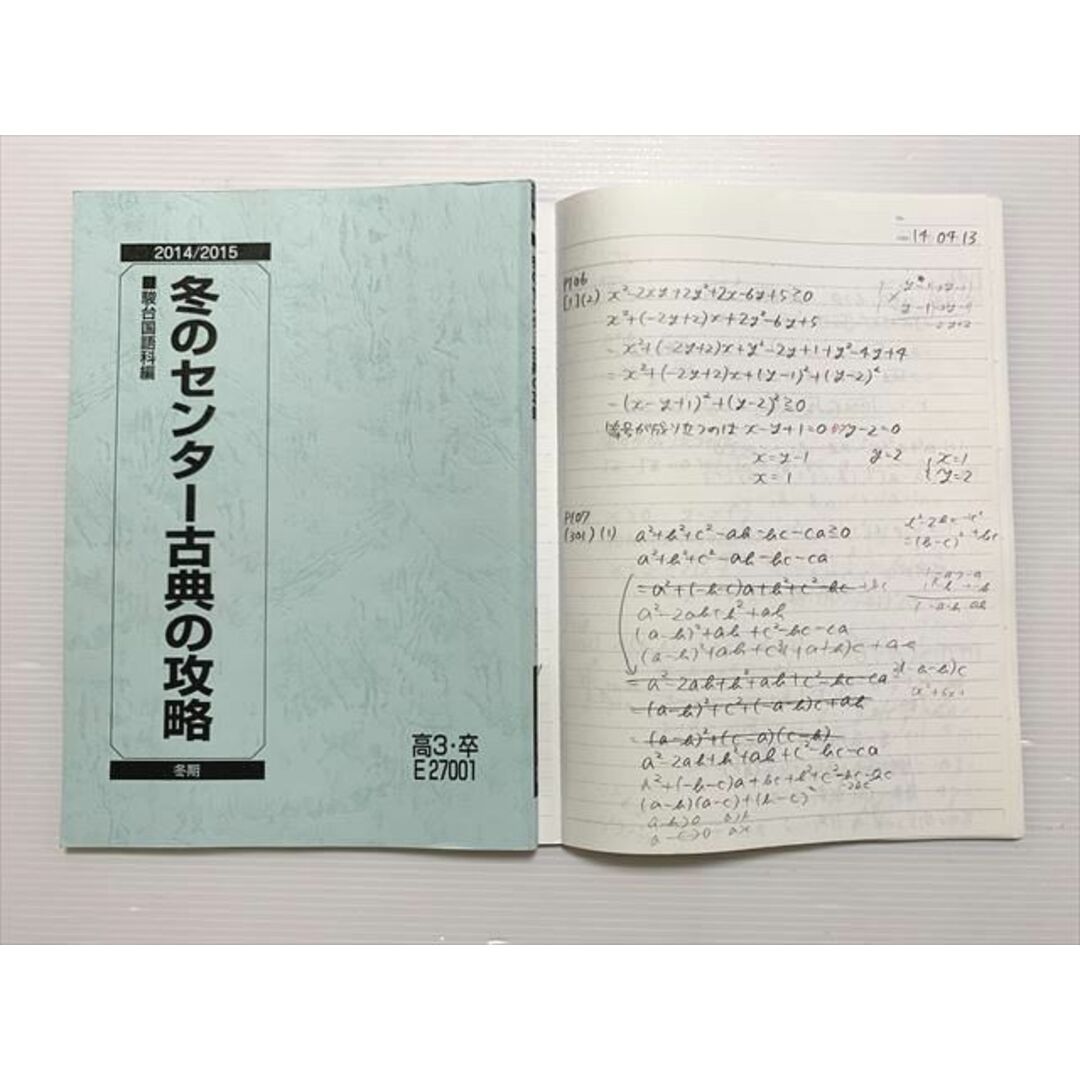 2014/2015
冬のセンター古典の攻略
■駿台国語科編
冬期
高3・卒
E27001
14 04 13
P106
x²-2xy+2y²+2x-6y+5≧0
x²+(-2y+2)x+2y²-6y+5
=x²+(-2y+2)x+y²-2y+1+y²-4y+4
=x²+(-2y+2)x+(y-1)²+(y-2)²
=(x-y+1)²+(y-2)²≧0
等号が成り立つのは x-y+1=0 かつ y-2=0
x=y-1 y=2 x=1
x=1 y=2
P107
(301) (1) a²+b²+c²-ab-bc-ca≧0
a²+b²+c²-ab-bc-ca
=a²+(-b-c)a+b²+c²-bc
a²-2ab+b²+ab
(a-b)²+ab+c²-bc-ca
=a²-2ab+b²+ab+c²-bc-ca
=(a-b)²+c²+(-a-b)c+ab
=(a-b)²+(c-a)(c-b)
a²-2ab+b²+ab+c²-bc-ca
(a-b)(a-c)+(b-c)²